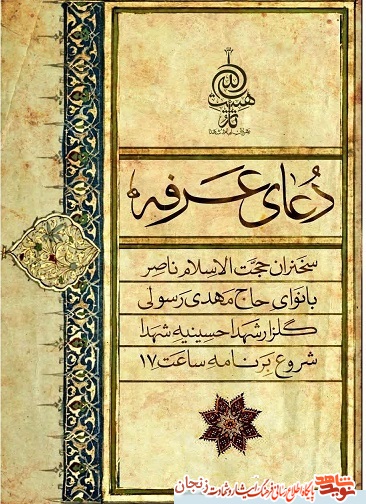 هیئت ثارالله
دُعای عَرفه
سخنران حجت الاسلام ناصر
بانوای حاج مهدی رسولی
گلزار شهدا حسینیه شهدا
شروع برنامه ساعت ۱۷
نوید شاهد
پایگاه اطلاع رسانی فرهنگ ایثار و شهادت زنجان